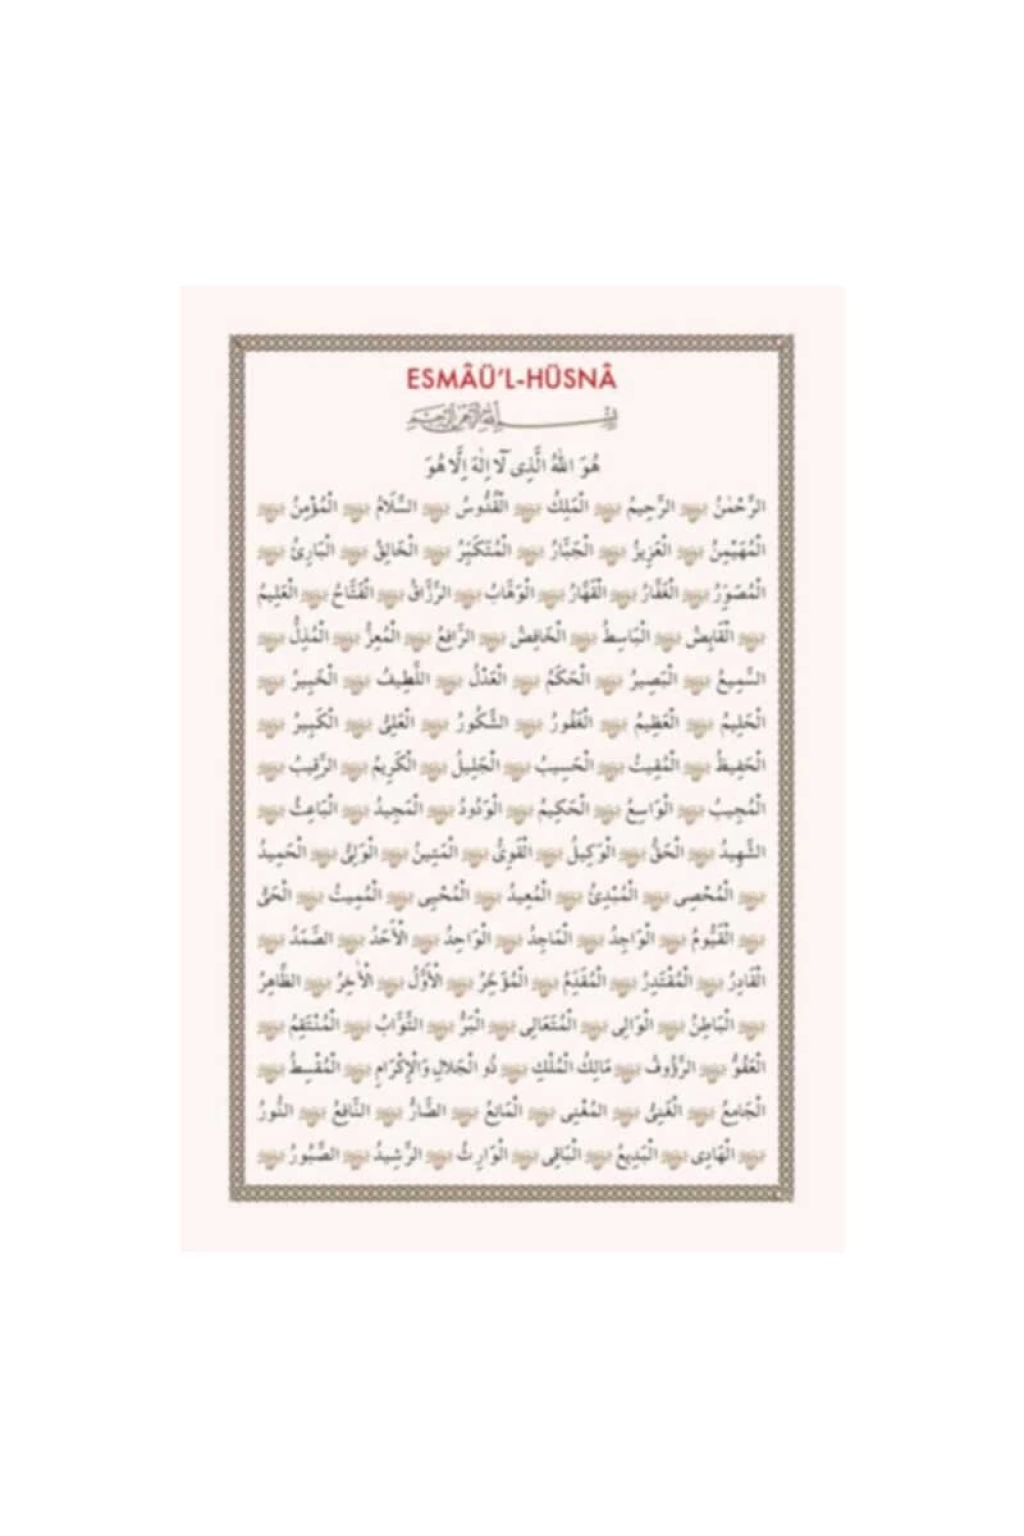 ESMÂÜ'L-HÜSNÂ
بِسْمِ اللّٰهِ الرَّحْمٰنِ الرَّحِيمِ
هُوَ اللّٰهُ الَّذِى لَٓا اِلٰهَ اِلَّا هُوَ
الرَّحْمٰنُ الرَّحِيمُ الْمَلِكُ الْقُدُّوسُ السَّلَامُ الْمُؤْمِنُ
الْمُهَيْمِنُ الْعَزِيزُ الْجَبَّارُ الْمُتَكَبِّرُ الْخَالِقُ الْبَارِئُ
الْمُصَوِّرُ الْغَفَّارُ الْقَهَّارُ الْوَهَّابُ الرَّزَّاقُ الْفَتَّاحُ الْعَلِيمُ
الْقَابِضُ الْبَاسِطُ الْخَافِضُ الرَّافِعُ الْمُعِزُّ الْمُذِلُّ
السَّمِيعُ الْبَصِيرُ الْحَكَمُ الْعَدْلُ اللَّطِيفُ الْخَبِيرُ
الْحَلِيمُ الْعَظِيمُ الْغَفُورُ الشَّكُورُ الْعَلِىُّ الْكَبِيرُ
الْحَفِيظُ الْمُقِيتُ الْحَسِيبُ الْجَلِيلُ الْكَرِيمُ الرَّقِيبُ
الْمُجِيبُ الْوَاسِعُ الْحَكِيمُ الْوَدُودُ الْمَجِيدُ الْبَاعِثُ
الشَّهِيدُ الْحَقُّ الْوَكِيلُ الْقَوِىُّ الْمَتِينُ الْوَلِىُّ الْحَمِيدُ
الْمُحْصِى الْمُبْدِئُ الْمُعِيدُ الْمُحْيِى الْمُمِيتُ الْحَىُّ
الْقَيُّومُ الْوَاجِدُ الْمَاجِدُ الْوَاحِدُ الْأَحَدُ الصَّمَدُ
الْقَادِرُ الْمُقْتَدِرُ الْمُقَدِّمُ الْمُؤَخِّرُ الْأَوَّلُ الْاٰخِرُ الظَّاهِرُ
الْبَاطِنُ الْوَالِى الْمُتَعَالِى الْبَرُّ التَّوَّابُ الْمُنْتَقِمُ
الْعَفُوُّ الرَّؤُوفُ مَالِكُ الْمُلْكِ ذُو الْجَلَالِ وَالْإِكْرَامِ الْمُقْسِطُ
الْجَامِعُ الْغَنِىُّ الْمُغْنِى الْمَانِعُ الضَّارُّ النَّافِعُ النُّورُ
الْهَادِى الْبَدِيعُ الْبَاقِى الْوَارِثُ الرَّشِيدُ الصَّبُورُ